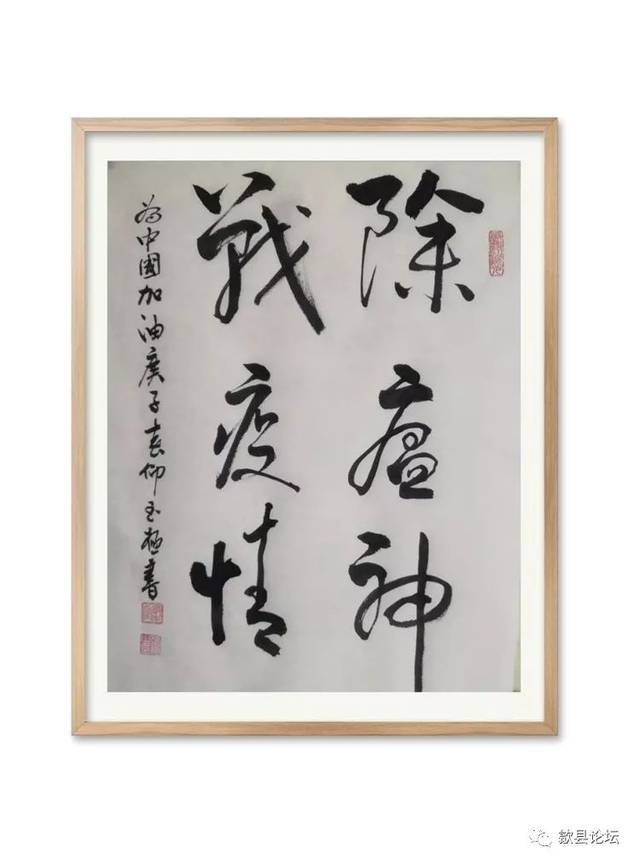 除瘟神
戰疫情
为中國加油庚子仰玉書
歙县论坛